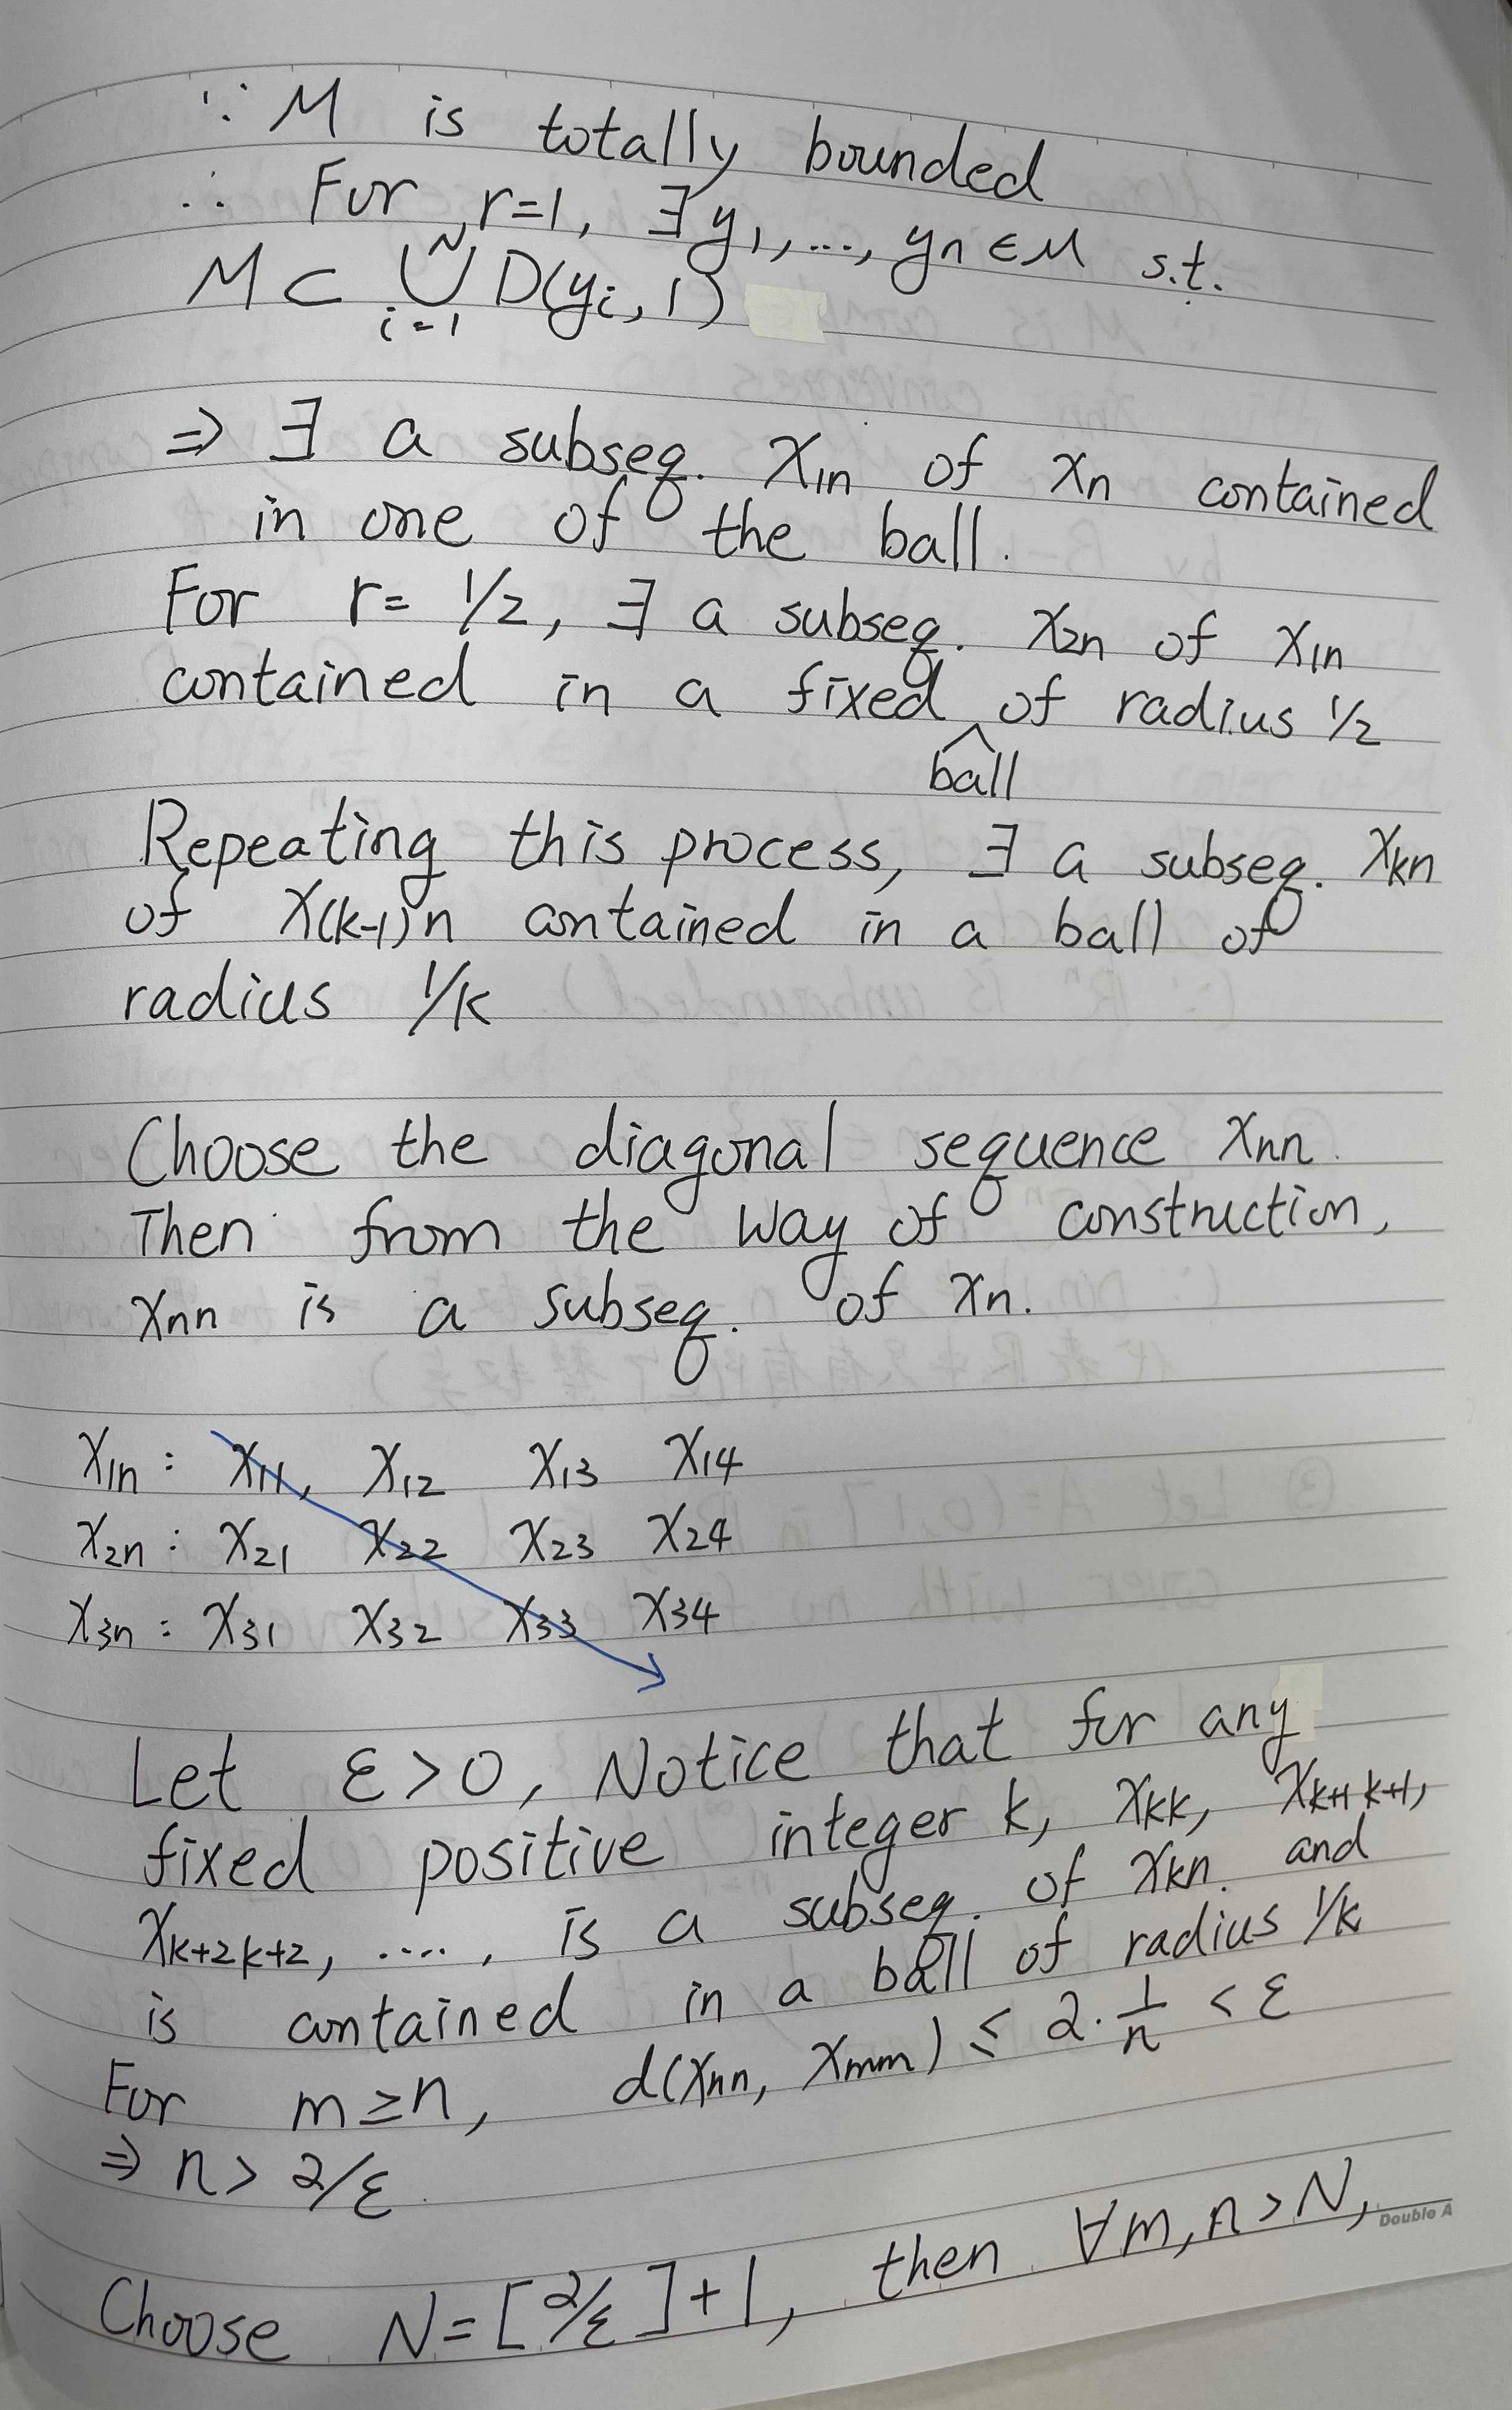 ∵ M is totally bounded
∴ For r=1, ∃ y₁, ..., yn ∈ M s.t.
M ⊂ ⋃ᵢ₌₁ᴺ D(yi, 1)
⇒ ∃ a subseq. x1n of xn contained
in one of the ball.
For r= 1/2, ∃ a subseq. x2n of x1n
contained in a fixed ball of radius 1/2
Repeating this process, ∃ a subseq. xkn
of x(k-1)n contained in a ball of
radius 1/k
Choose the diagonal sequence xnn.
Then from the way of construction,
xnn is a subseq. of xn.
x1n : x11, x12 x13 x14
x2n : x21 x22 x23 x24
x3n : x31 x32 x33 x34
Let ε>0, Notice that for any
fixed positive integer k, xkk, xk+1 k+1,
xk+2 k+2, ...., is a subseq. of xkn and
is contained in a ball of radius 1/k
For m≥n, d(xnn, xmm) ≤ 2·1/n < ε
⇒ n > 2/ε.
Choose N = [2/ε]+1, then ∀m,n>N,
Double A